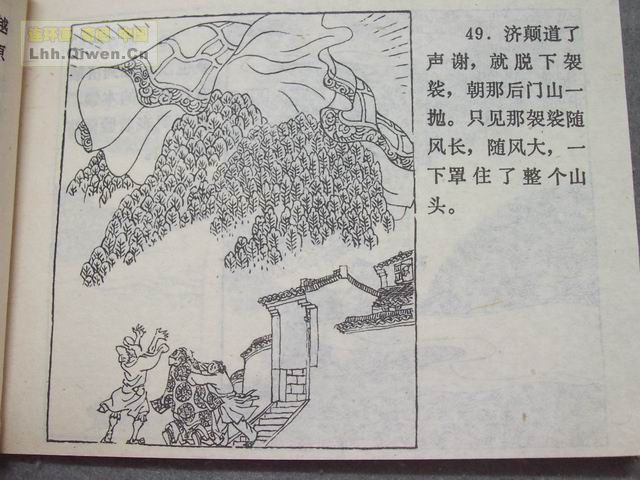 连环画 奇闻 中国
Lhh.Qiwen.Cn
越
49. 济颠道了
声谢，就脱下袈
裟，朝那后门山一
抛。只见那袈裟随
风长，随风大，一
下罩住了整个山
头。